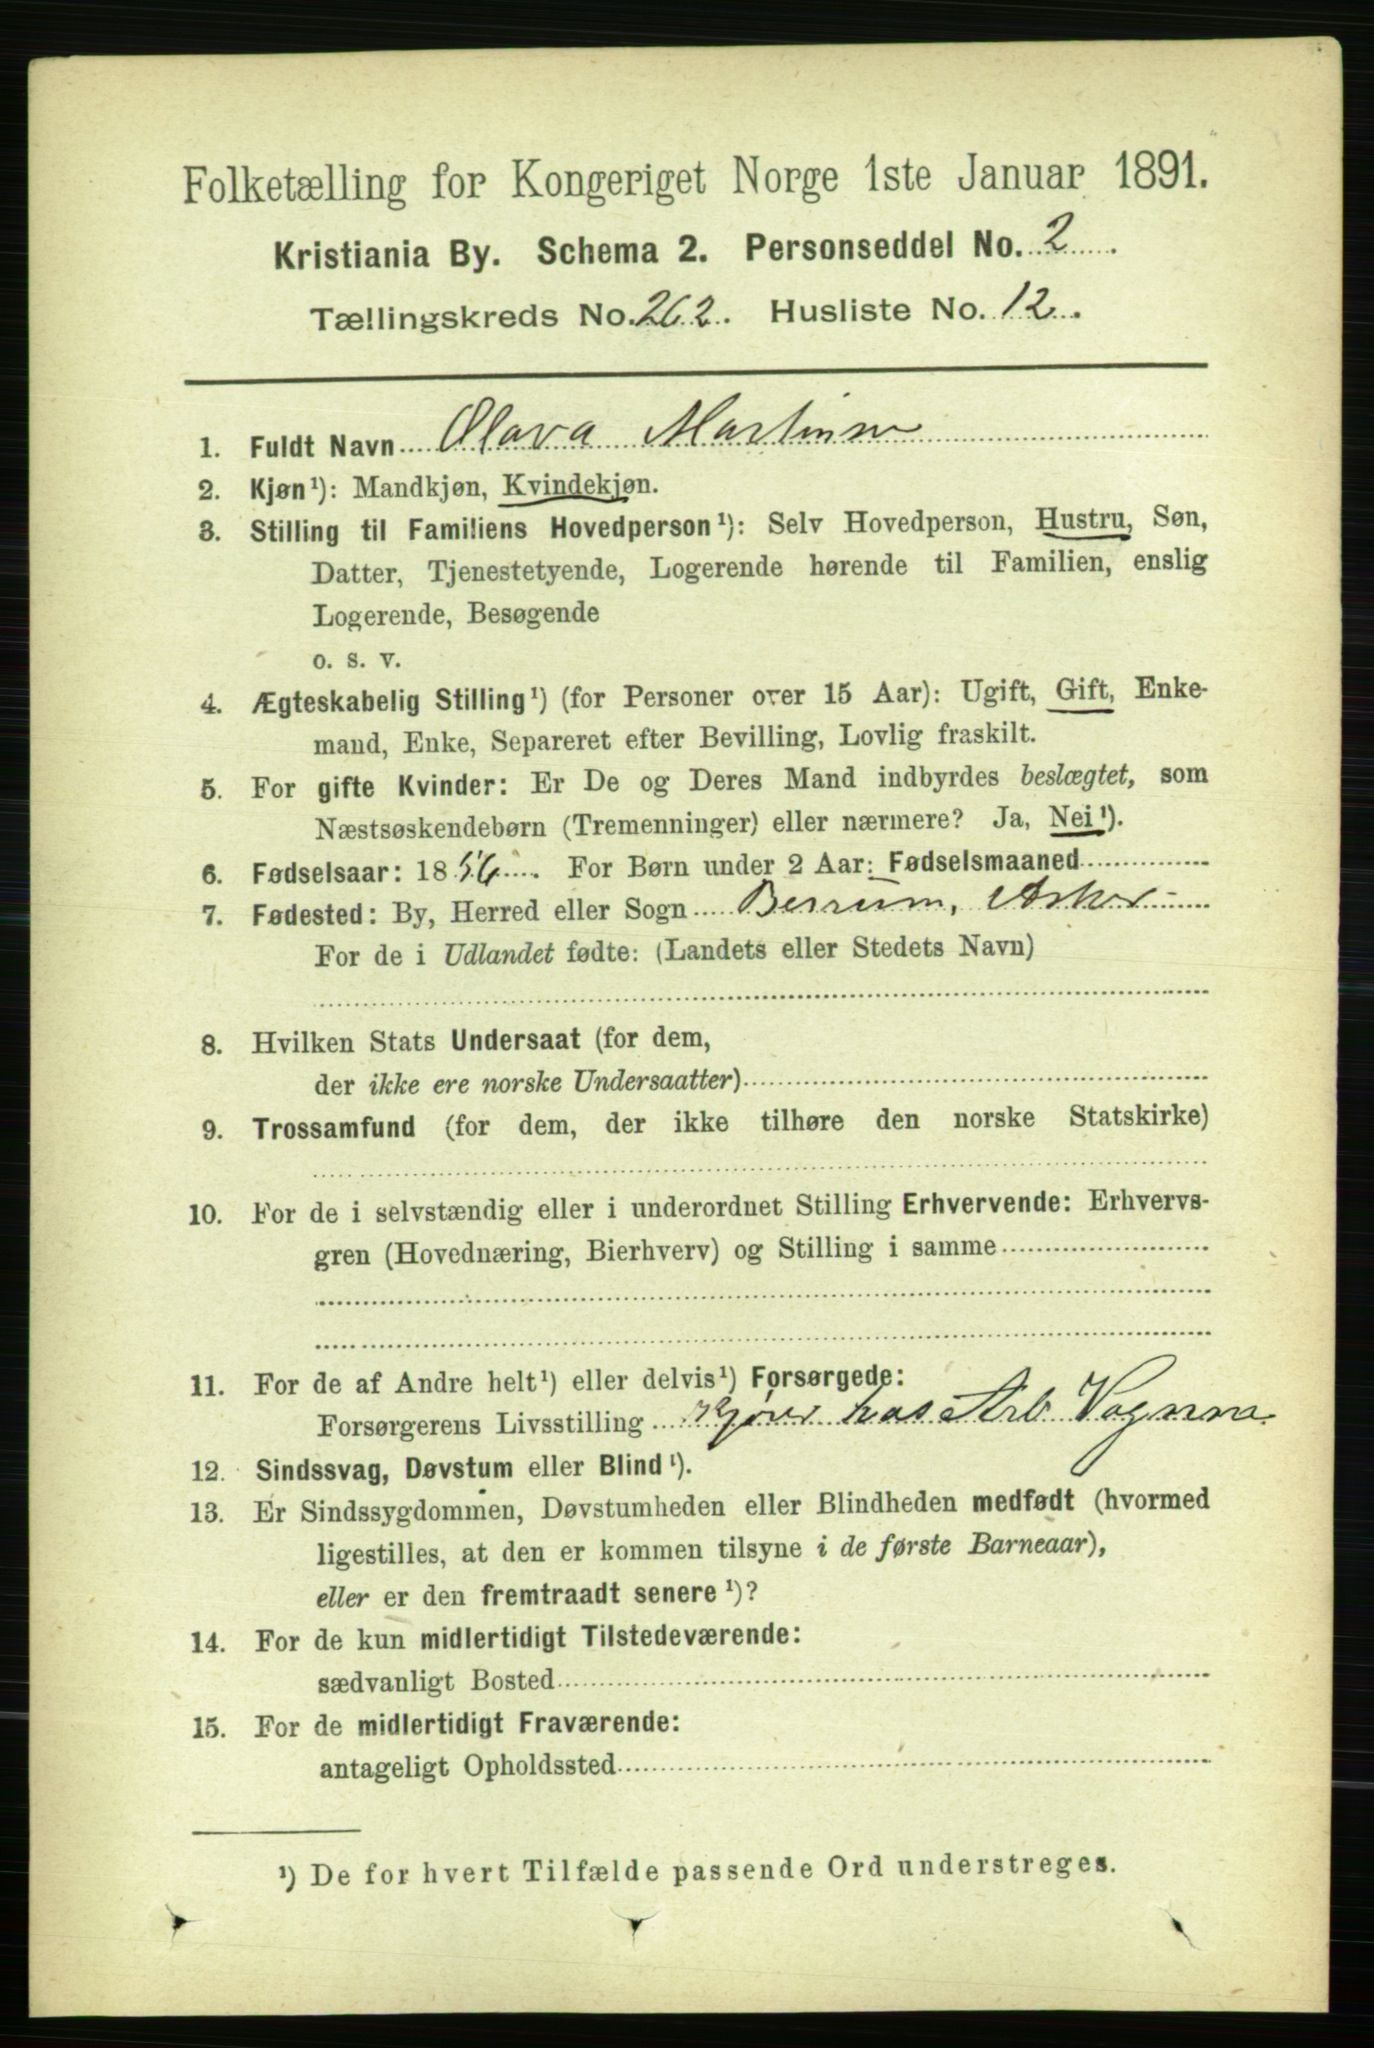 Folketælling for Kongeriget Norge 1ste Januar 1891.
Kristiania By. Schema 2. Personseddel No. 2.
Tællingskreds No. 262. Husliste No. 12.
1. Fuldt Navn Olava Martinsen
2. Kjøn¹): Mandkjøn, Kvindekjøn.
3. Stilling til Familiens Hovedperson¹): Selv Hovedperson, Hustru, Søn,
Datter, Tjenestetyende, Logerende hørende til Familien, enslig
Logerende, Besøgende
o. s. v.
4. Ægteskabelig Stilling¹) (for Personer over 15 Aar): Ugift, Gift, Enke-
mand, Enke, Separeret efter Bevilling, Lovlig fraskilt.
5. For gifte Kvinder: Er De og Deres Mand indbyrdes beslægtet, som
Næstsøskendebørn (Tremenninger) eller nærmere? Ja, Nei¹).
6. Fødselsaar: 1856. For Børn under 2 Aar: Fødselsmaaned
7. Fødested: By, Herred eller Sogn Berrum, Asker
For de i Udlandet fødte: (Landets eller Stedets Navn)
8. Hvilken Stats Undersaat (for dem,
der ikke ere norske Undersaatter)
9. Trossamfund (for dem, der ikke tilhøre den norske Statskirke)
10. For de i selvstændig eller i underordnet Stilling Erhvervende: Erhvervs-
gren (Hovednæring, Bierhverv) og Stilling i samme
11. For de af Andre helt¹) eller delvis¹) Forsørgede:
Forsørgerens Livsstilling Kjører hos Arb
12. Sindssvag, Døvstum eller Blind¹).
13. Er Sindssygdommen, Døvstumheden eller Blindheden medfødt (hvormed
ligestilles, at den er kommen tilsyne i de første Barneaar),
eller er den fremtraadt senere¹)?
14. For de kun midlertidigt Tilstedeværende:
sædvanligt Bosted
15. For de midlertidigt Fraværende:
antageligt Opholdssted
¹) De for hvert Tilfælde passende Ord understreges.